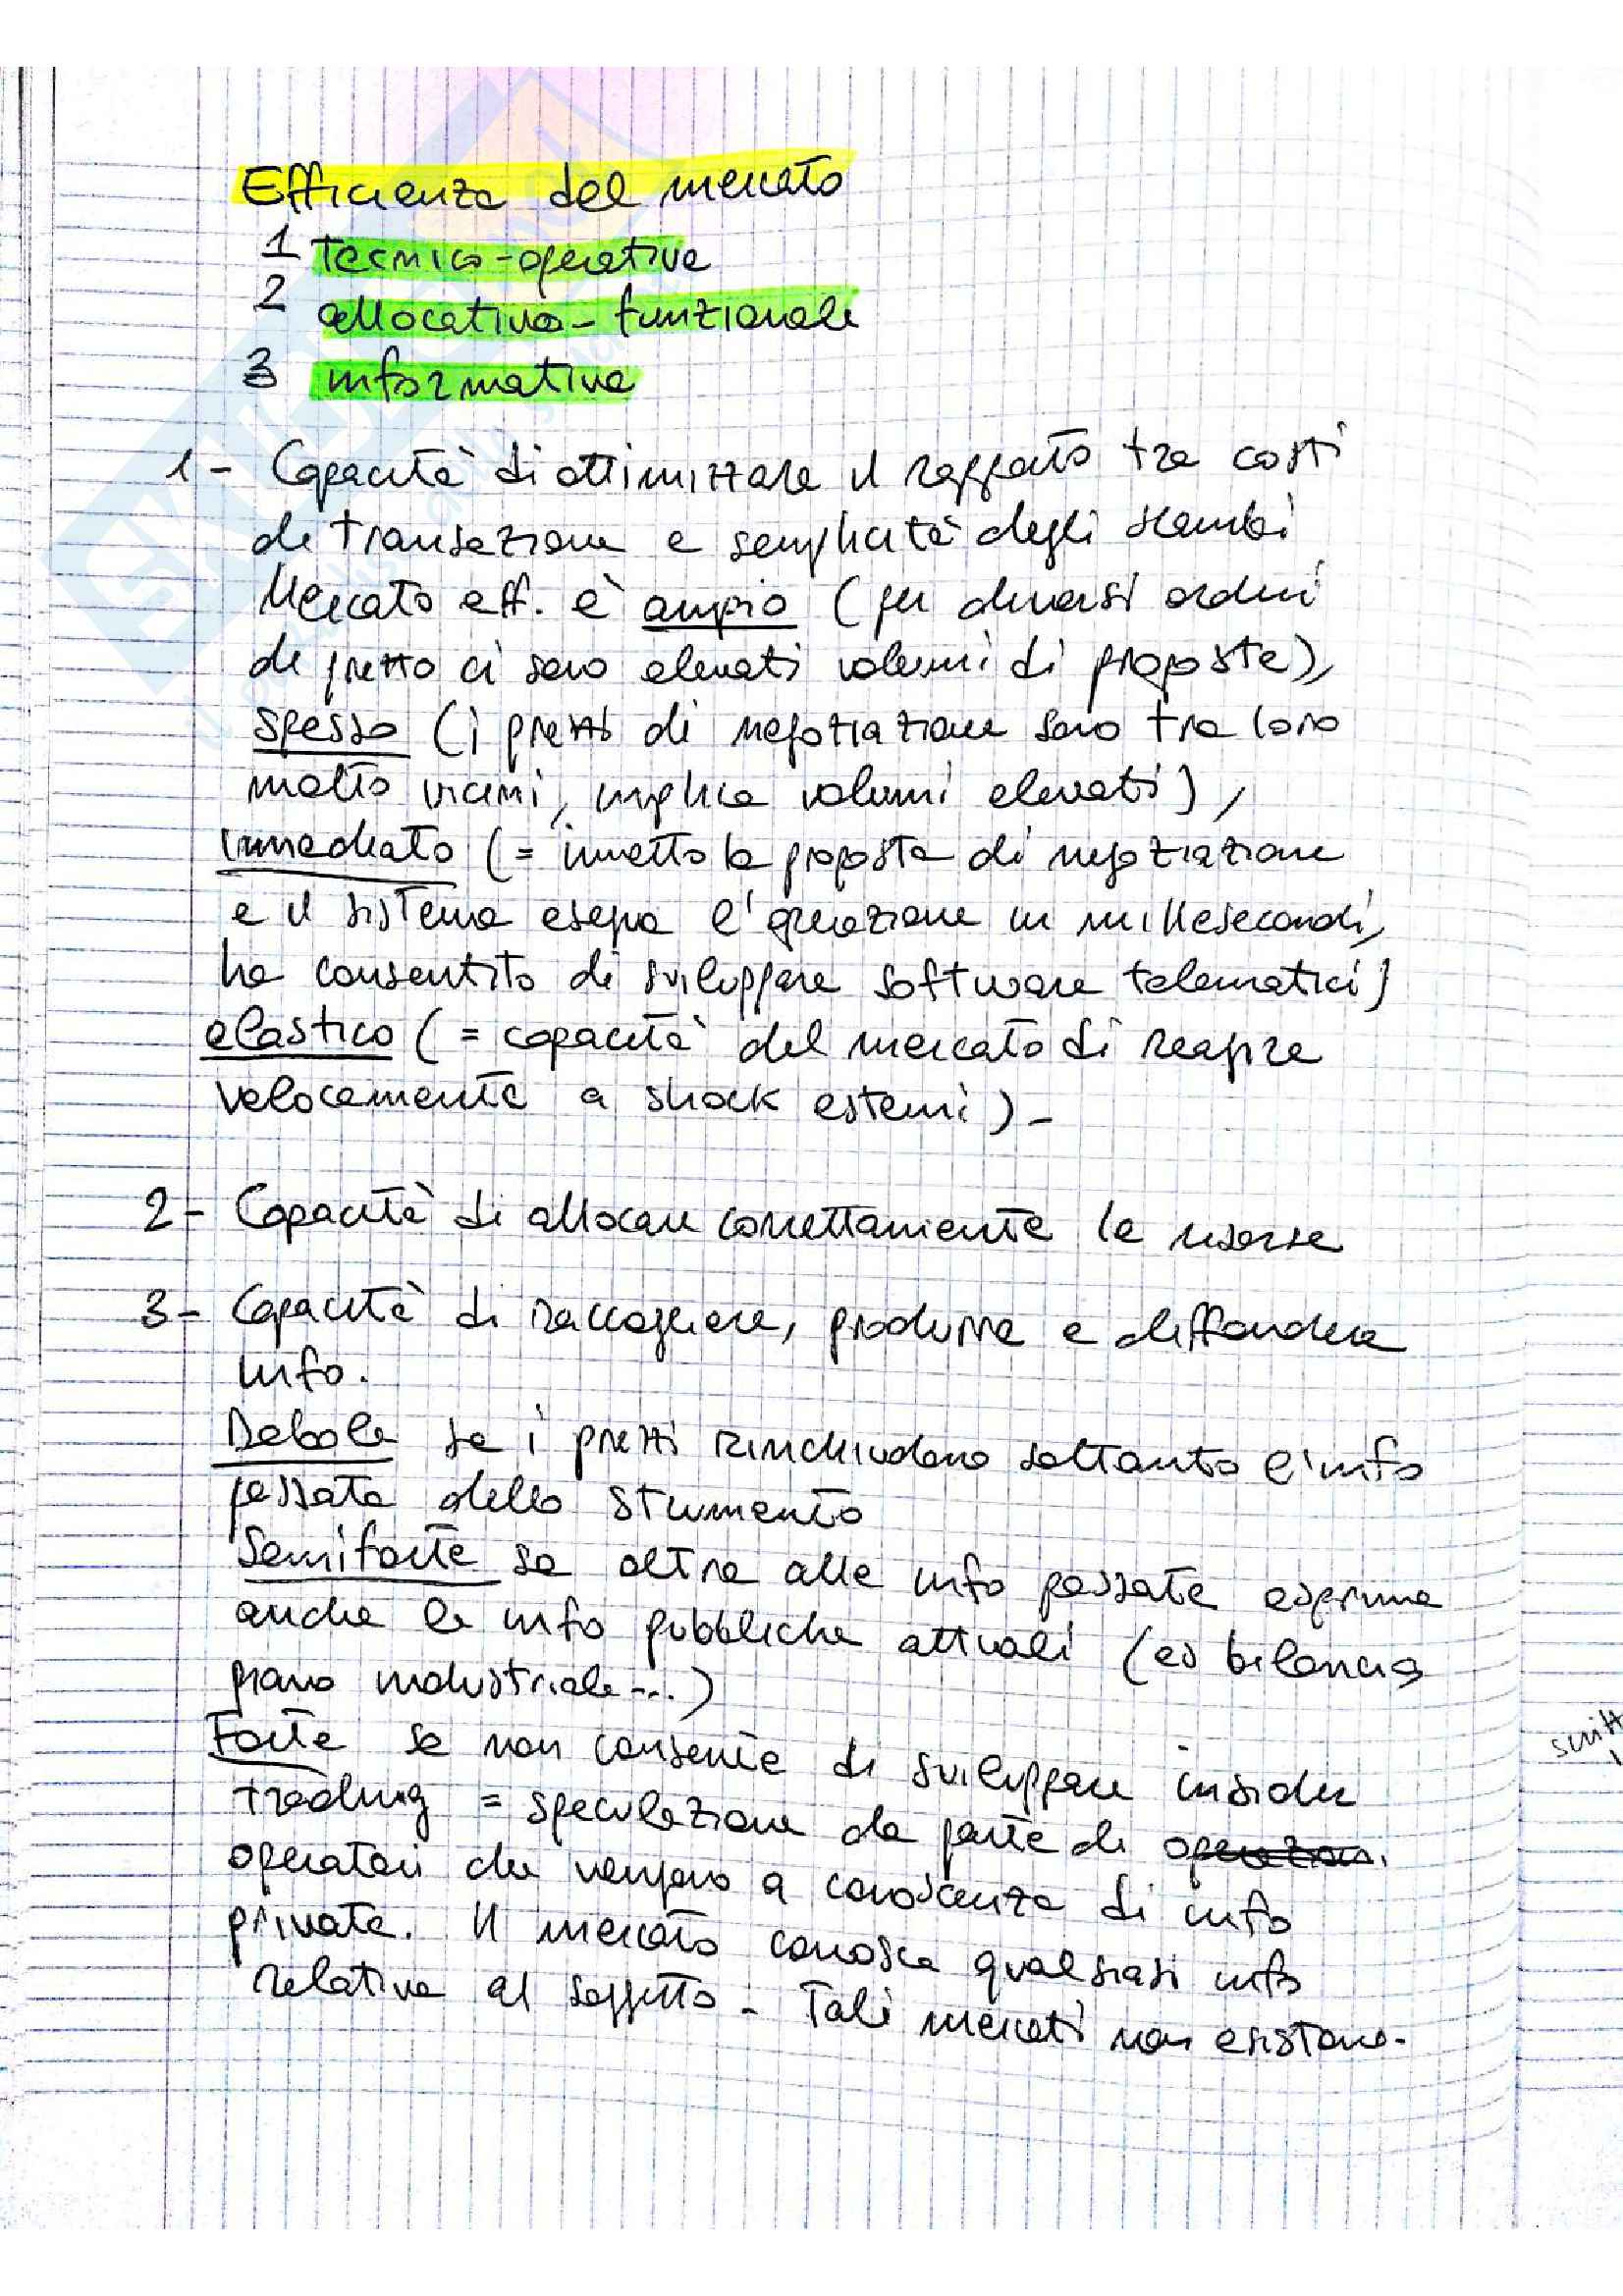 Efficienza del mercato
1 tecnico-operativa
2 allocativa-funzionale
3 informativa
1- Capacità di ottimizzare il rapporto tra costi
di transazione e semplicità degli scambi
Mercato eff. è ampio (per diversi ordini
di prezzo ci sono elevati volumi di proposte),
spesso (i prezzi di negoziazione sono tra loro
molto vicini, implica volumi elevati),
immediato (= immetto la proposta di negoziazione
e il sistema esegue l'operazione in millesecondi,
ha consentito di sviluppare software telematici)
elastico (= capacità del mercato di reagire
velocemente a shock esterni)-
2- Capacità di allocare correttamente le risorse
3- Capacità di raccogliere, produrre e diffondere
info.
Debole se i prezzi rinchiudono soltanto l'info
passata dello strumento
Semiforte se oltre alle info passate esprime
anche le info pubbliche attuali (es bilancio,
piano industriale...)
Forte se non consente di sviluppare insider
trading = speculazione da parte di
operatori che vengono a conoscenza di info
private. Il mercato conosce qualsiasi info
relativa al soggetto - Tali mercati non esistono.